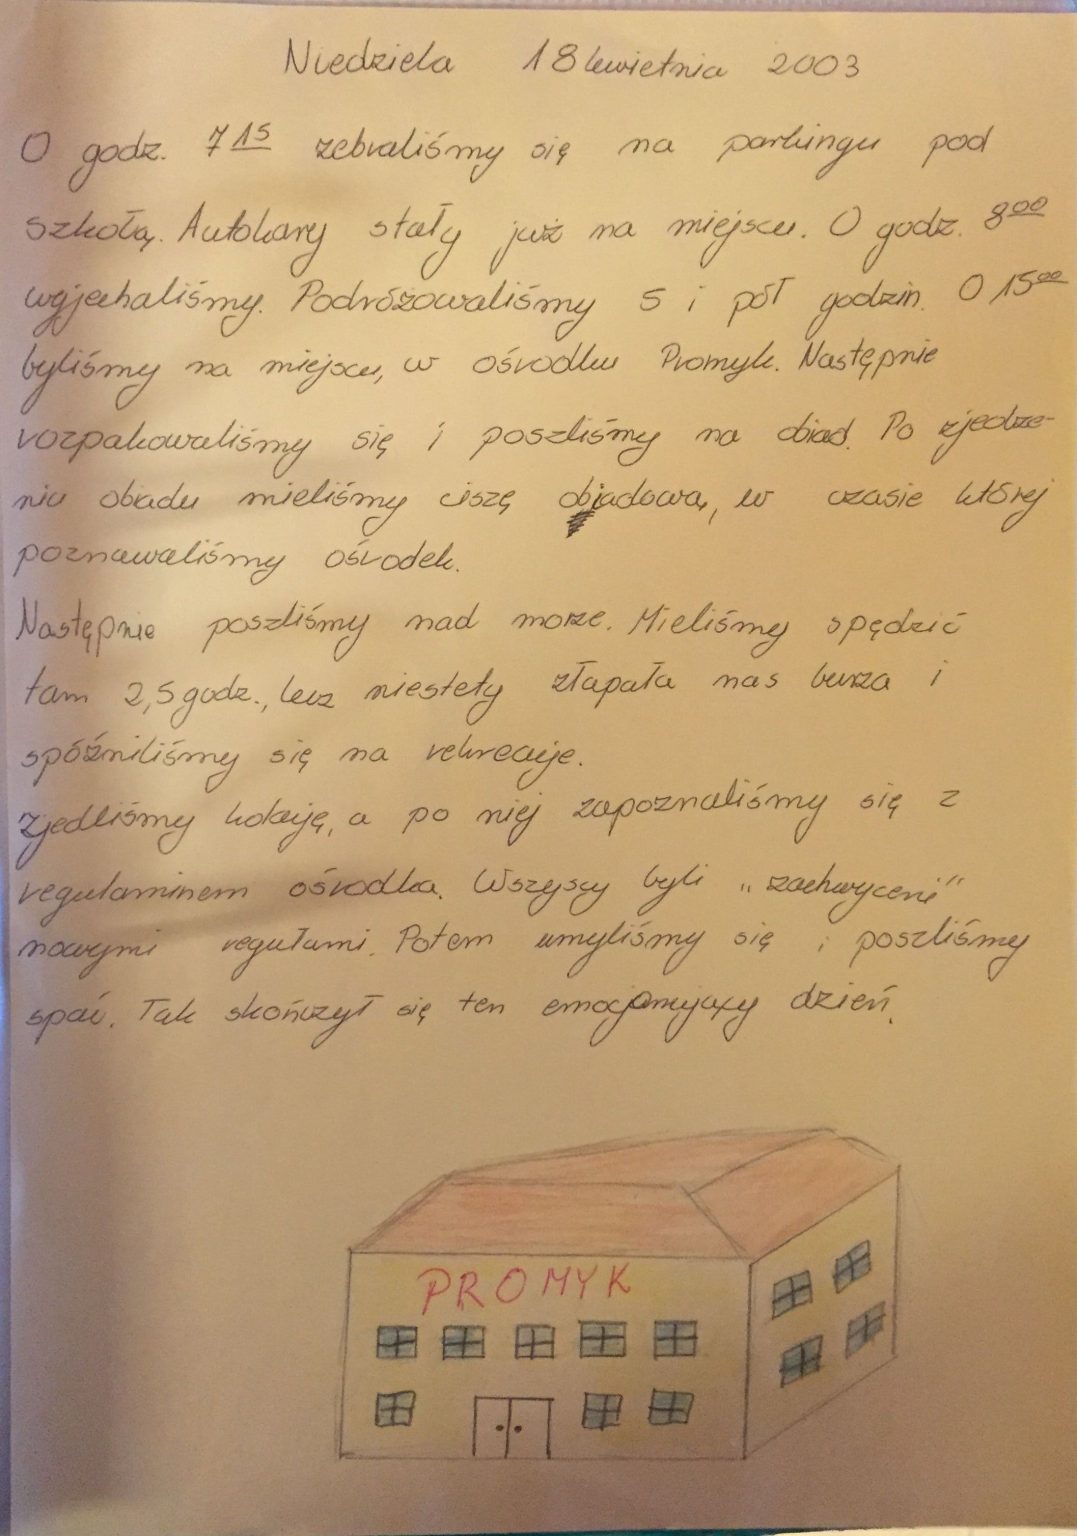 Niedziela 18 kwietnia 2003
O godz. 7 15 zebraliśmy się na parkingu pod
szkołą. Autokary stały już na miejscu. O godz. 8 00
wyjechaliśmy. Podróżowaliśmy 5 i pół godzin. O 15 00
byliśmy na miejscu, w ośrodku Promyk. Następnie
rozpakowaliśmy się i poszliśmy na obiad. Po zjedze-
niu obiadu mieliśmy ciszę objadową, w czasie której
poznawaliśmy ośrodek.
Następnie poszliśmy nad morze. Mieliśmy spędzić
tam 2,5 godz., lecz niestety złapała nas burza i
spóźniliśmy się na rekreacje.
Zjedliśmy kolację, a po niej zapoznaliśmy się z
regulaminem ośrodka. Wszyscy byli „zachwyceni"
nowymi regułami. Potem umyliśmy się i poszliśmy
spać. Tak skończył się ten emocjonujący dzień.
PROMYK